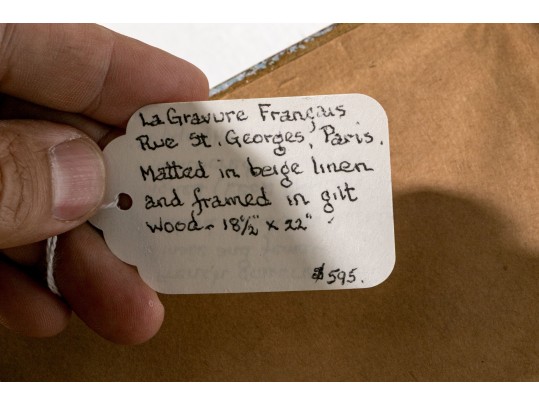 La Gravure Français
Rue St. Georges, Paris.
Matted in beige linen
and framed in gilt
wood - 18½" x 22"
$595.